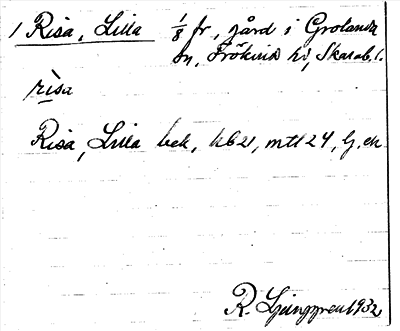 1 Risa, Lilla 1/8 fr, gård i Grolanda
sn, Frökinds hd, Skarab. l.
rìsa
Risa, Lilla bek, kb 21, mtl 24, G. ek
R. Ljunggren 1932